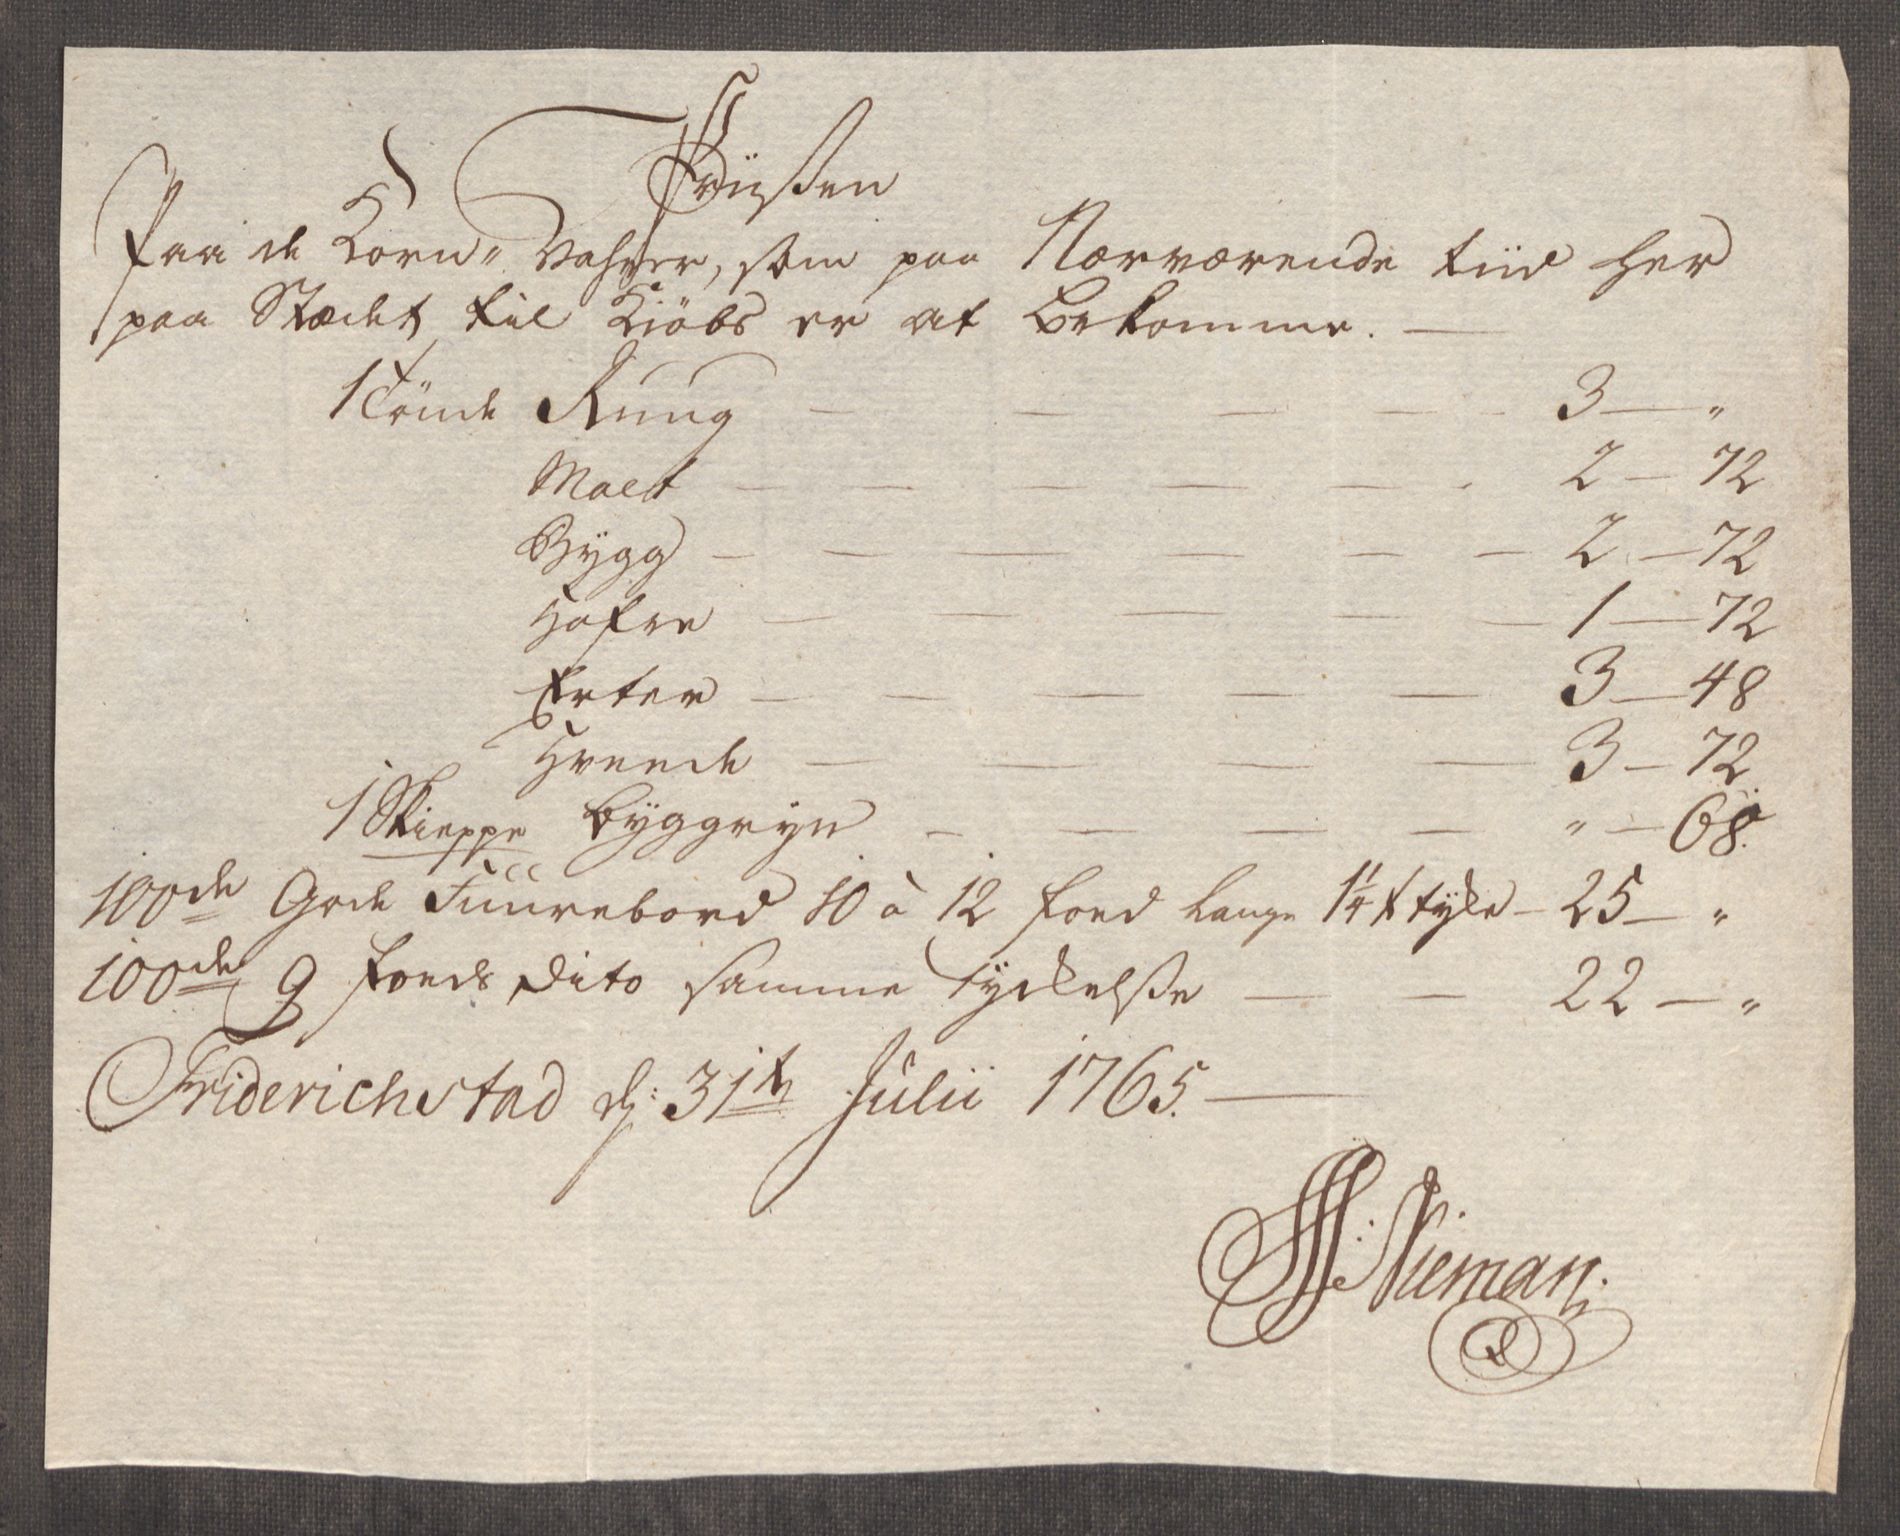 Priißen
Paa de Korn- Vahrer, som paa Nærværende tiid her
paa Stædet til Kiöbs er at bekomme. —
1 Tönde Rung — 3 — "
Malt — 2 — 72
Bÿgg — 2 — 72
Hafre — 1 — 72
Erter — 3 — 48
Hveede — 3 — 72
1 Skieppe bÿggryn — " — 68.
100de Gode Fuurebord 10 à 12 foed lange 1¼ t tyke — 25 — "
100de 9 foeds Dito samme Tÿckelße — 22 — "
Friderichstad d: 31te Julii 1765. —
Nieman.